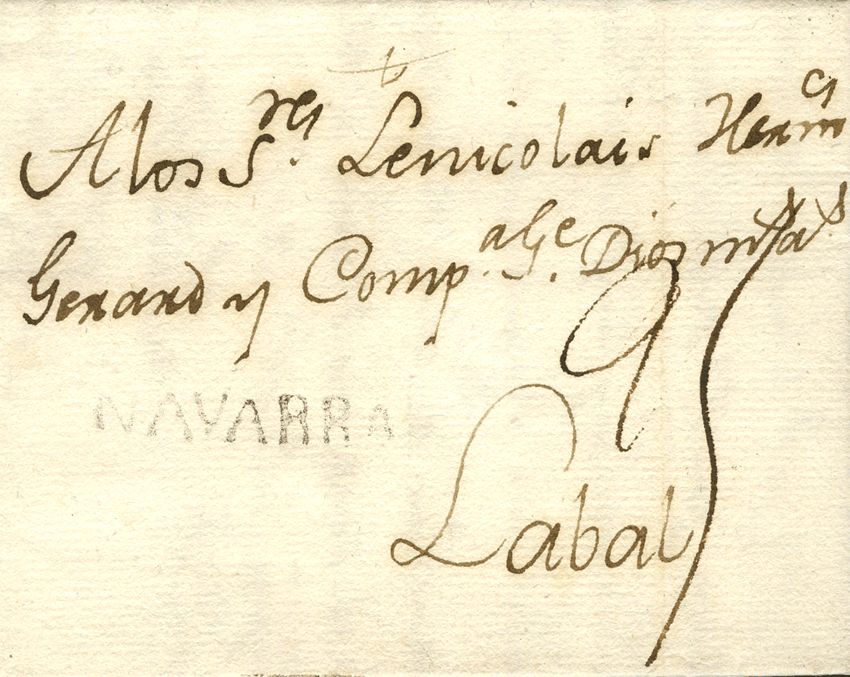 A los S.res Lenicolais Herm.s
Gerard y Comp.a G.e Dios m.s a.s
NAVARRA
Labal